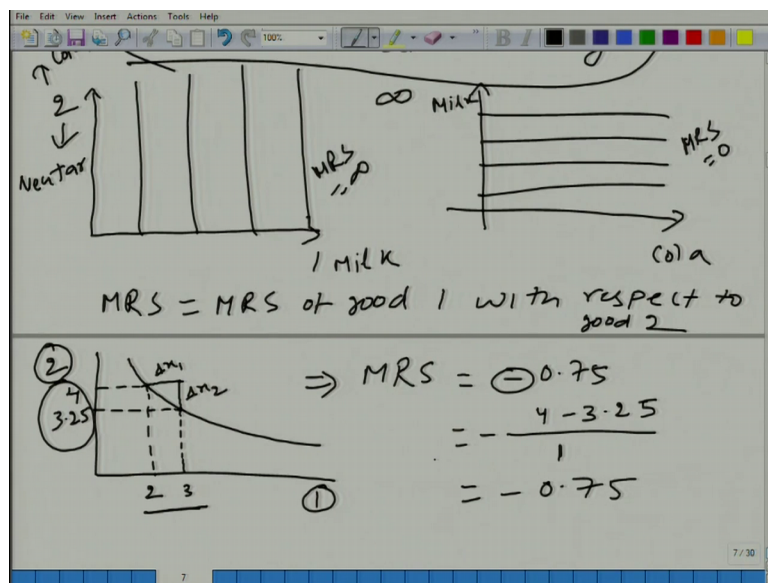 File Edit View Insert Actions Tools Help
100%
B I
2
∞
Milk
Neutar
MRS
= ∞
MRS
= 0
1 Milk
Cola
MRS = MRS of good 1 with respect to
good 2
2
Δx1
Δx2
4
3.25
2 3
1
⇒ MRS = - 0.75
= - 4 - 3.25
1
= - 0.75
7 / 30
7